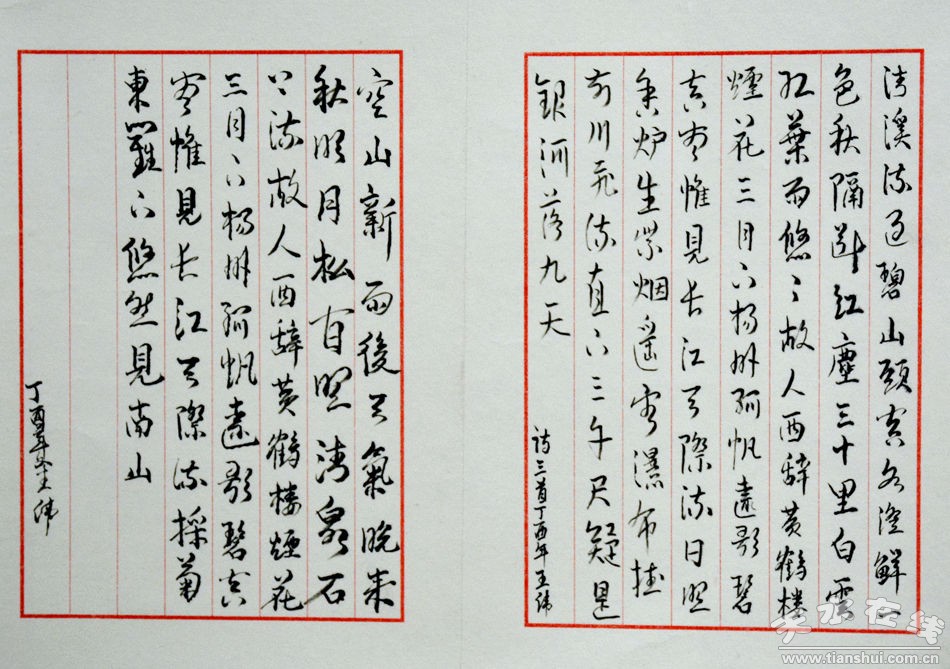 清溪流过碧山頭空水澄鮮一
色秋隔斷红塵三十里白雲
红葉两悠〻故人西辞黄鹤楼
煙花三月下揚州孤帆遠影碧
空尽惟見长江天際流日照
香炉生紫烟遥看瀑布挂
前川飛流直下三千尺疑是
銀河落九天
詩三首丁酉年王緯
空山新雨後天氣晚来
秋明月松间照清泉石
上流故人西辞黄鹤楼煙花
三月下揚州孤帆遠影碧空
尽惟見长江天際流採菊
東籬下悠然見南山
丁酉年王緯
天水在线
www.tianshui.com.cn